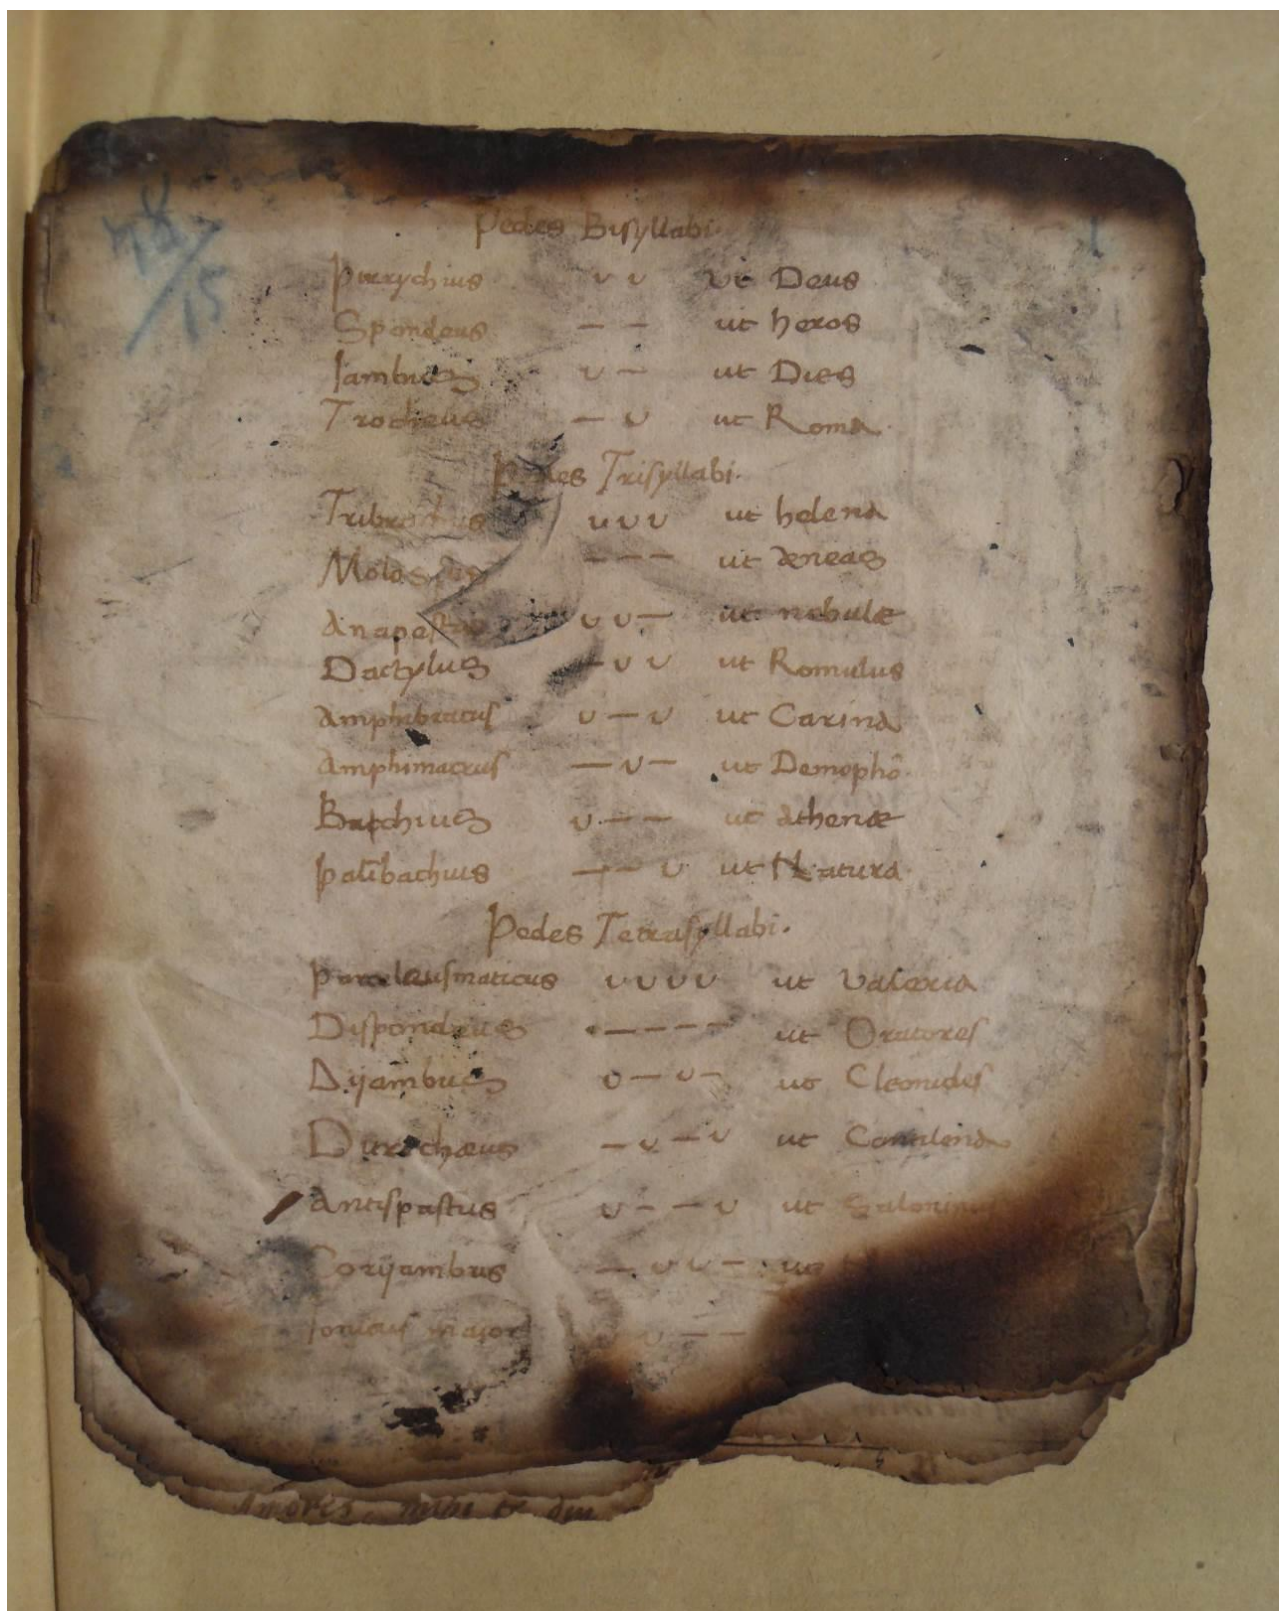 78/15
Pedes Bisyllabi.
Pirrychius ᴗ ᴗ ut Deus
Spondeus – – ut heros
Iambus ᴗ – ut Dies
Trocheus – ᴗ ut Roma
Trisyllabi.
Tribrachus ᴗ ᴗ ᴗ ut helena
– – – ut æneas
Anapestus ᴗ ᴗ – ut nebulæ
Dactylus – ᴗ ᴗ ut Romulus
Amphibracus ᴗ – ᴗ ut Carina
Amphimacrus – ᴗ – ut Demophô
Bacchius ᴗ – – ut Athenæ
Palĩbachius – – ᴗ ut Natura
Pedes Tetrasyllabi.
ᴗ ᴗ ᴗ ᴗ ut Valeria
Dispondeus – – – – ut Oratores
Dijambus ᴗ – ᴗ – ut Cleonides
– ᴗ – ᴗ ut
Antispastus ᴗ – – ᴗ ut
Corijambus – ᴗ ᴗ – ut
Ionicus major – –
Amores